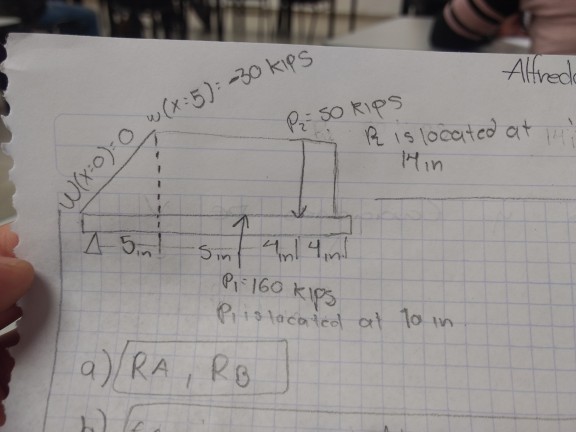 Alfredo
w(x=5)=-30 KIPS
W(x=0)=0
P2=50 KIPS
P2 is located at
14 in
5in 5in 4in 4in
P1=160 KIPS
P1 is located at 10 in
a) RA, RB
b)